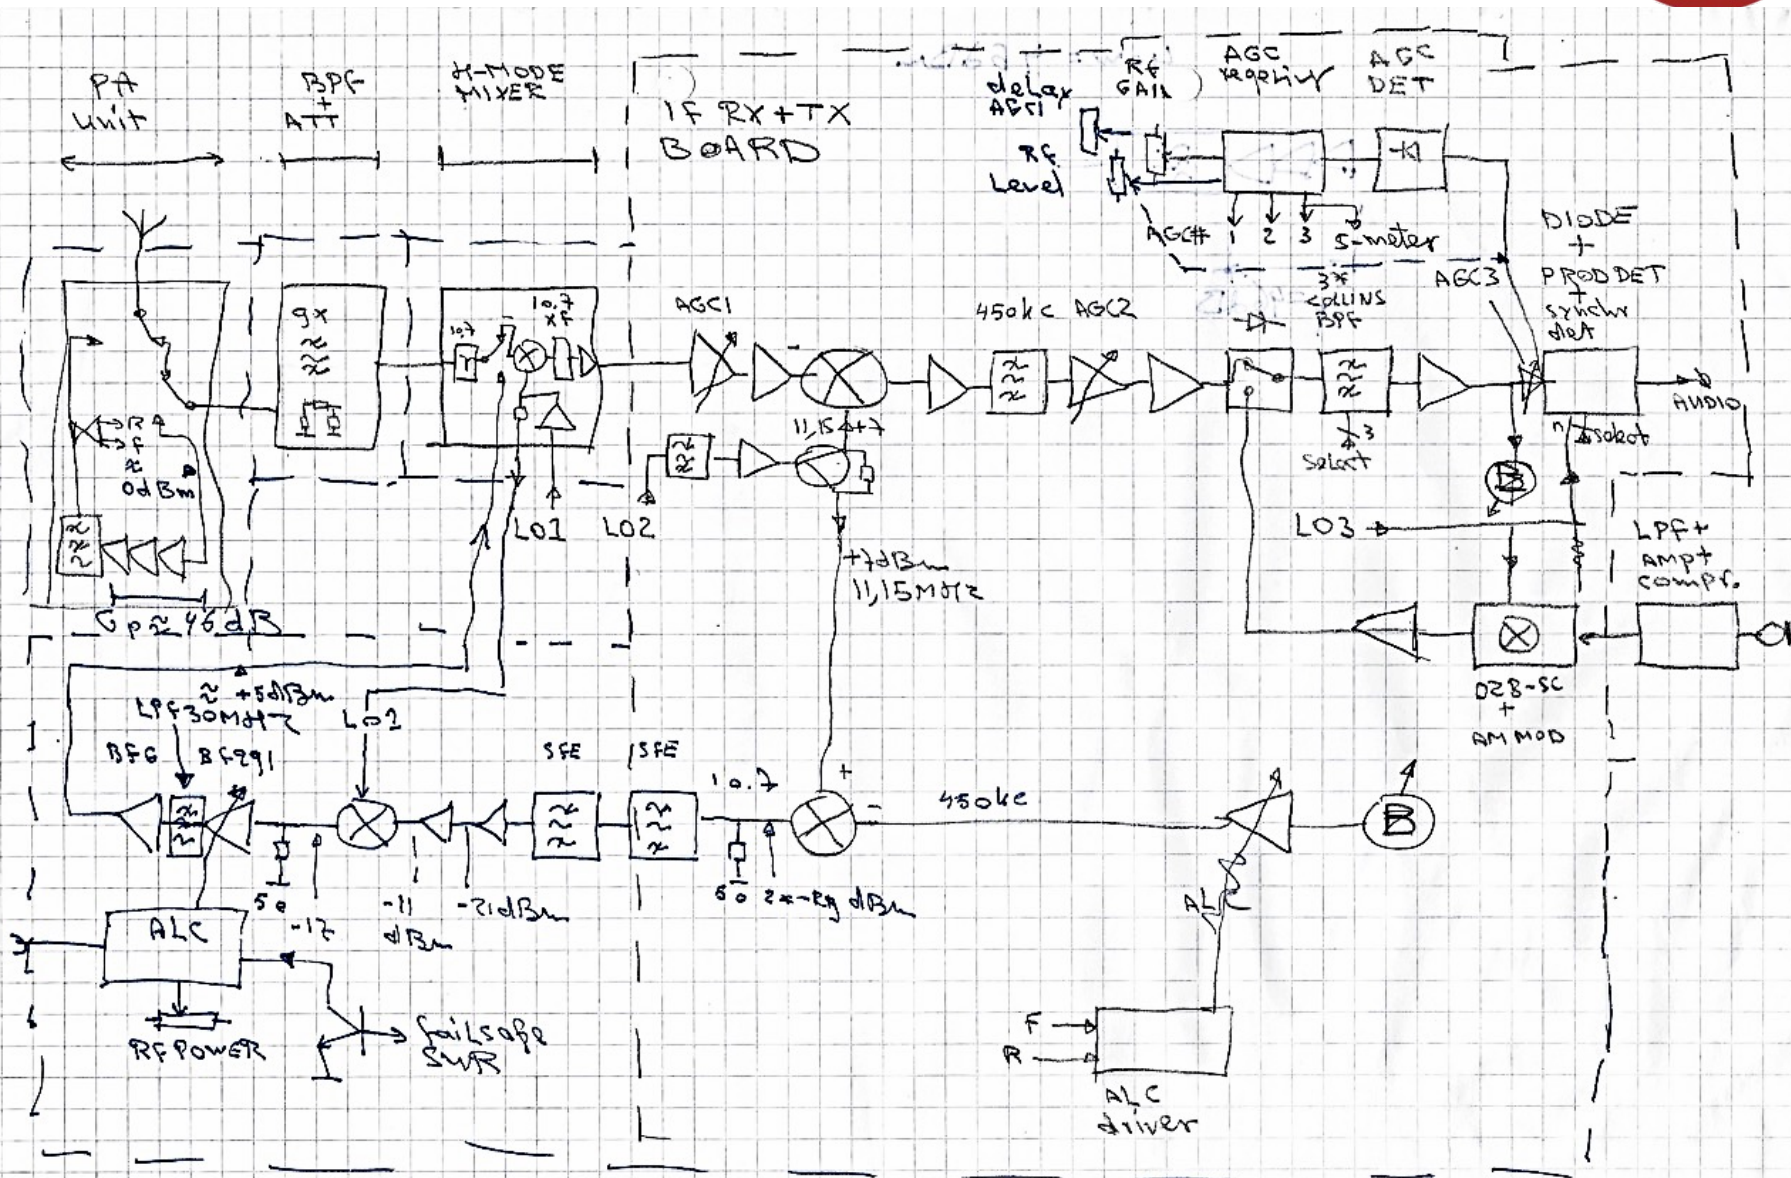 PA
unit
BPF
+
ATT
H-MODE
MIXER
IF RX+TX
BOARD
delay
AGC1
RF
GAIN
AGC
AGC
DET
RF
Level
AGC#
1
2
3
S-meter
DIODE
+
PRODDET
+
synchr
det
AGC3
3*
COLLINS
BPF
9x
10.7
10.7
XF
AGC1
450kc
AGC2
AUDIO
3
select
n
select
11,15
+7
R
F
≈
0dBm
LO1
LO2
LO3
B
+7dBm
11,15MHz
LPF+
AMP+
compr.
Gp≈46dB
≈ +5dBm
LPF30MHz
LO1
DZB-SC
+
AM MOD
BFG
BF991
SFE
SFE
10.7
+
-
450kc
B
50
-17
-11
dBm
-21dBm
50
ALC
ALC
RF POWER
failsafe
SWR
F
R
ALC
driver